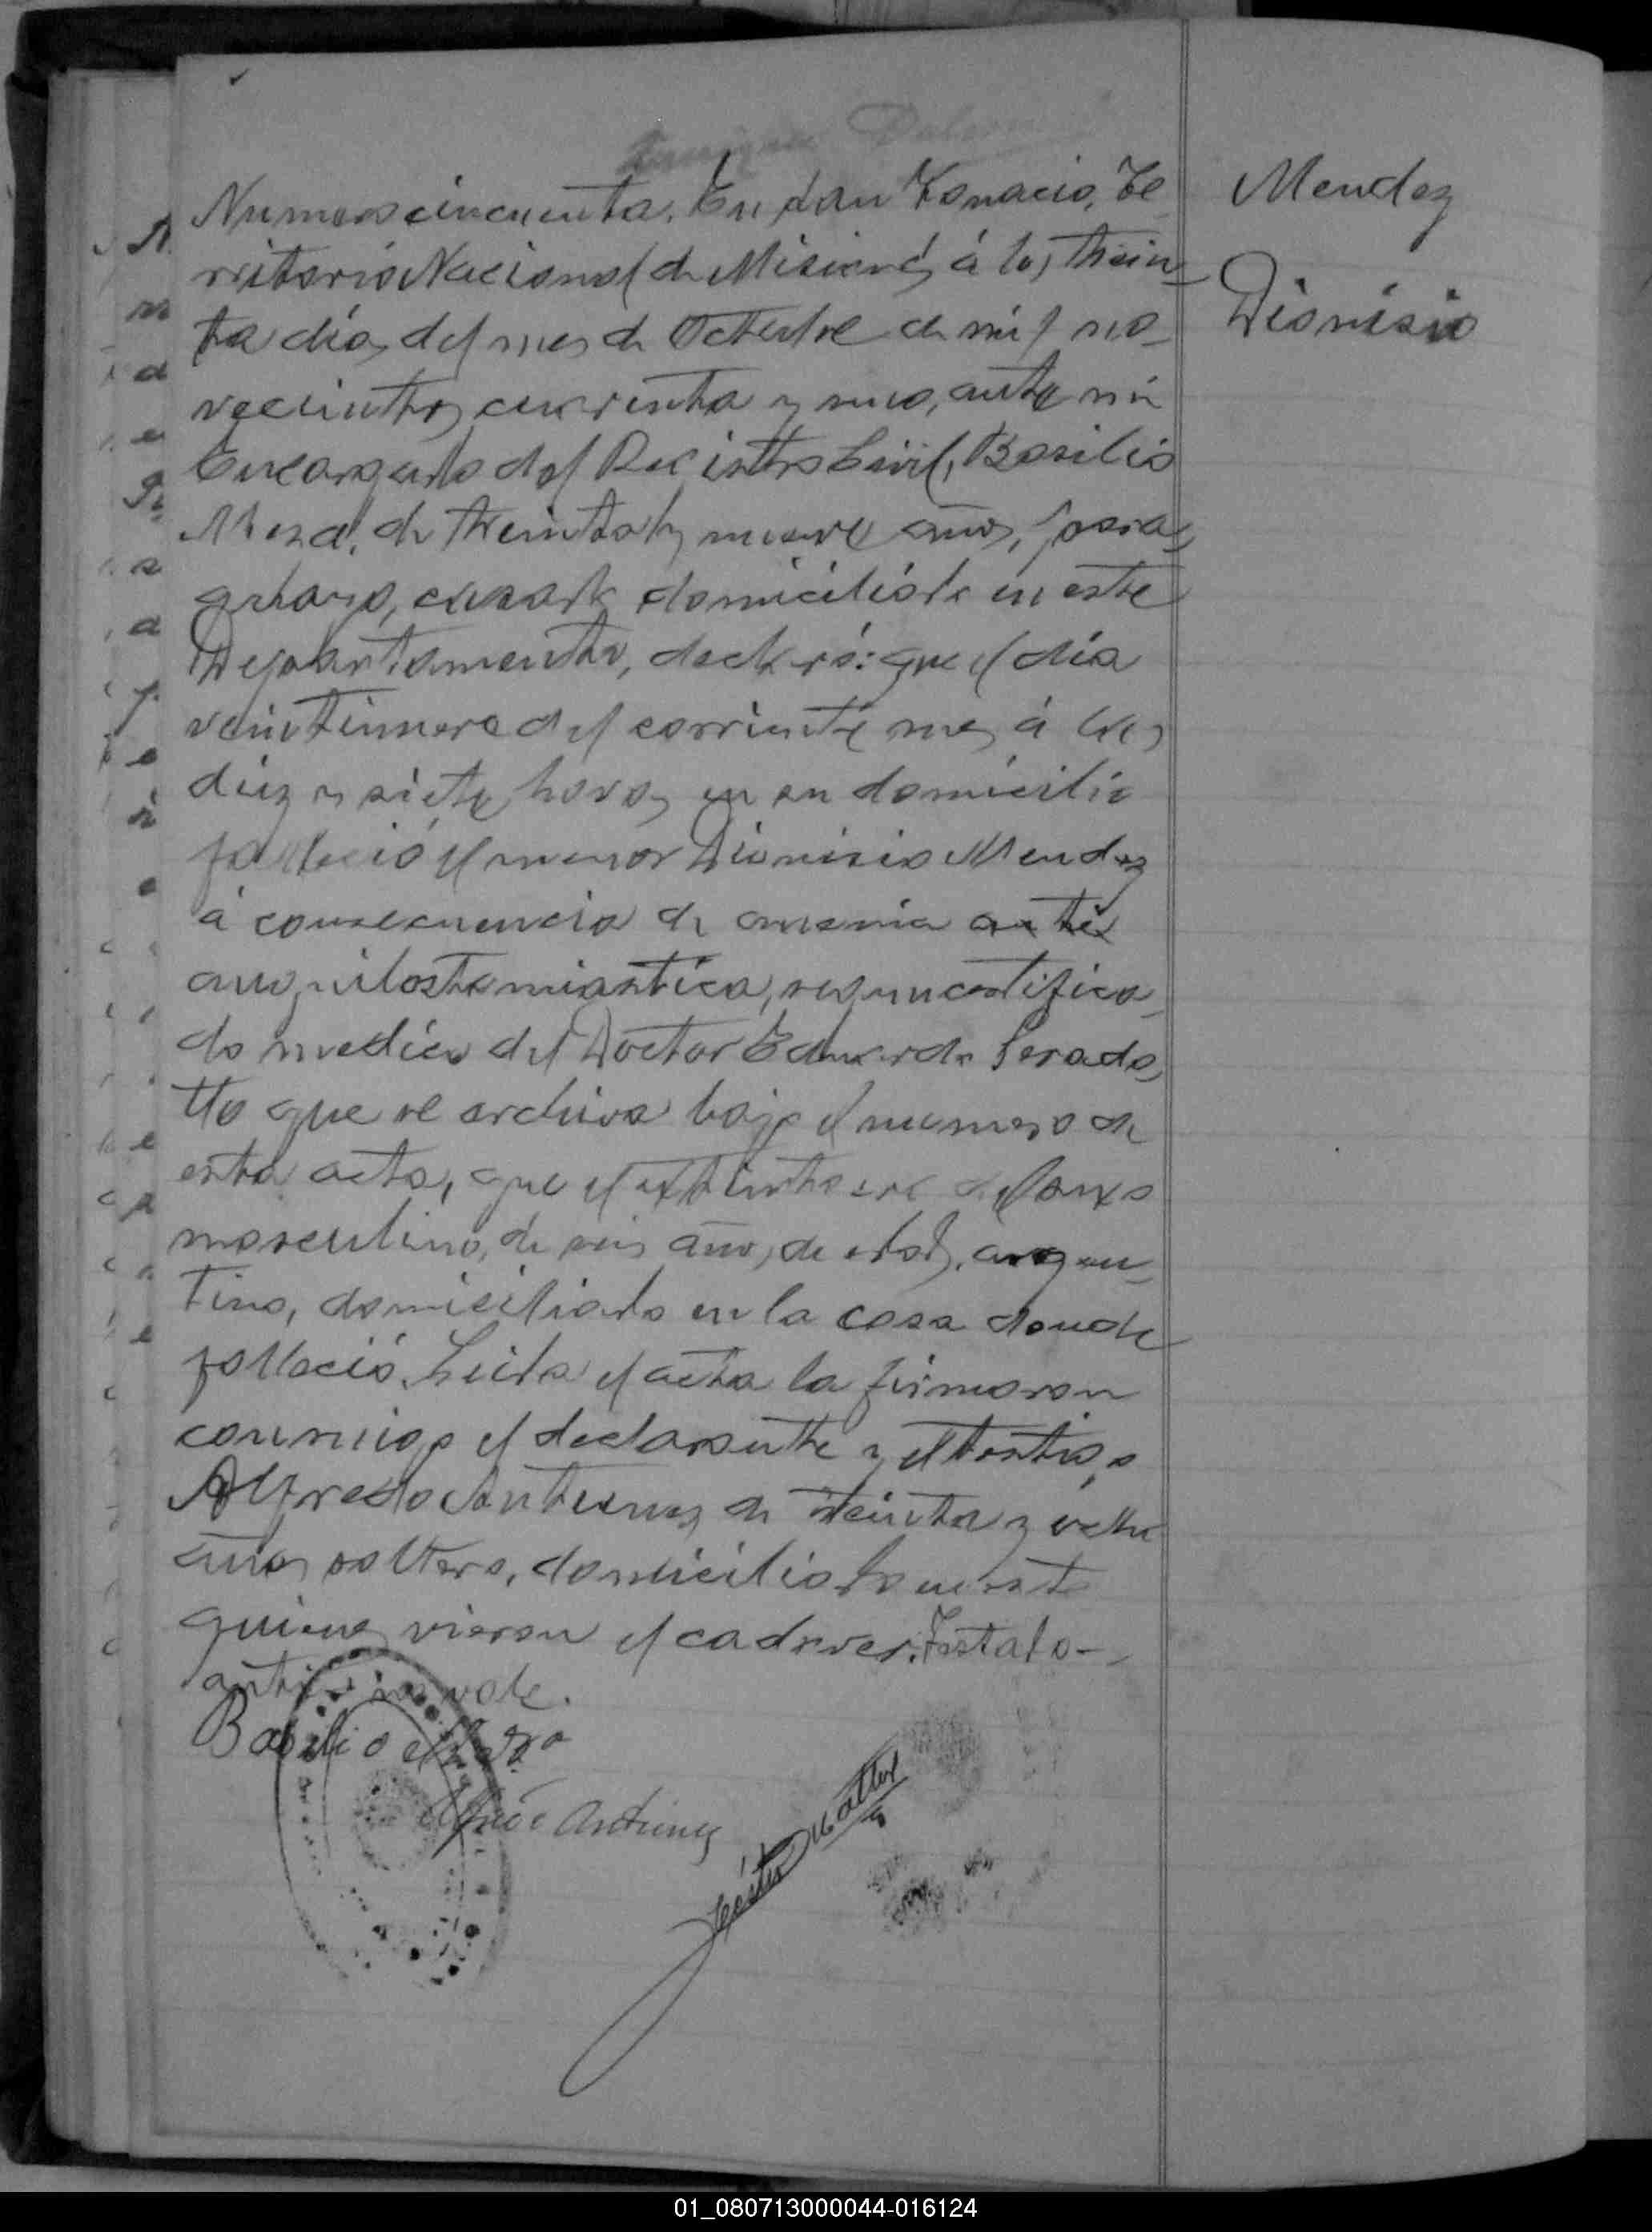 Numero cincuenta. En San Ygnacio, Te-
rritorio Nacional de Misiones, á los trein-
ta dias del mes de Octubre de mil no-
vecientos cuarenta y uno, ante mi
Encargado del Registro Civil, Basilio
Meza, de treinta y nueve años, para-
guayo, casado domiciliado en este
Departamento, declaró: que el dia
veintinueve del corriente mes á las
diez y siete horas en su domicilio
falleció el menor Dionisio Mendez
á consecuencia de anemia anti
anquilostomiastica, segun certifica-
do medico del Doctor Eduardo
tto que se archiva bajo el numero de
esta acta, que el extinto era del sexo
masculino, de seis años de edad, argen-
tino, domiciliado en la casa donde
falleció. Leida el acta la firmaron
conmigo el declarante y el testigo
Alfredo Antunez de treinta y ocho
años soltero, domiciliado en esta
quienes vieron el cadaver. Testado-
anti: no vale.
Basilio Meza
Antunez
Mendez
Dionisio
01_080713000044-016124